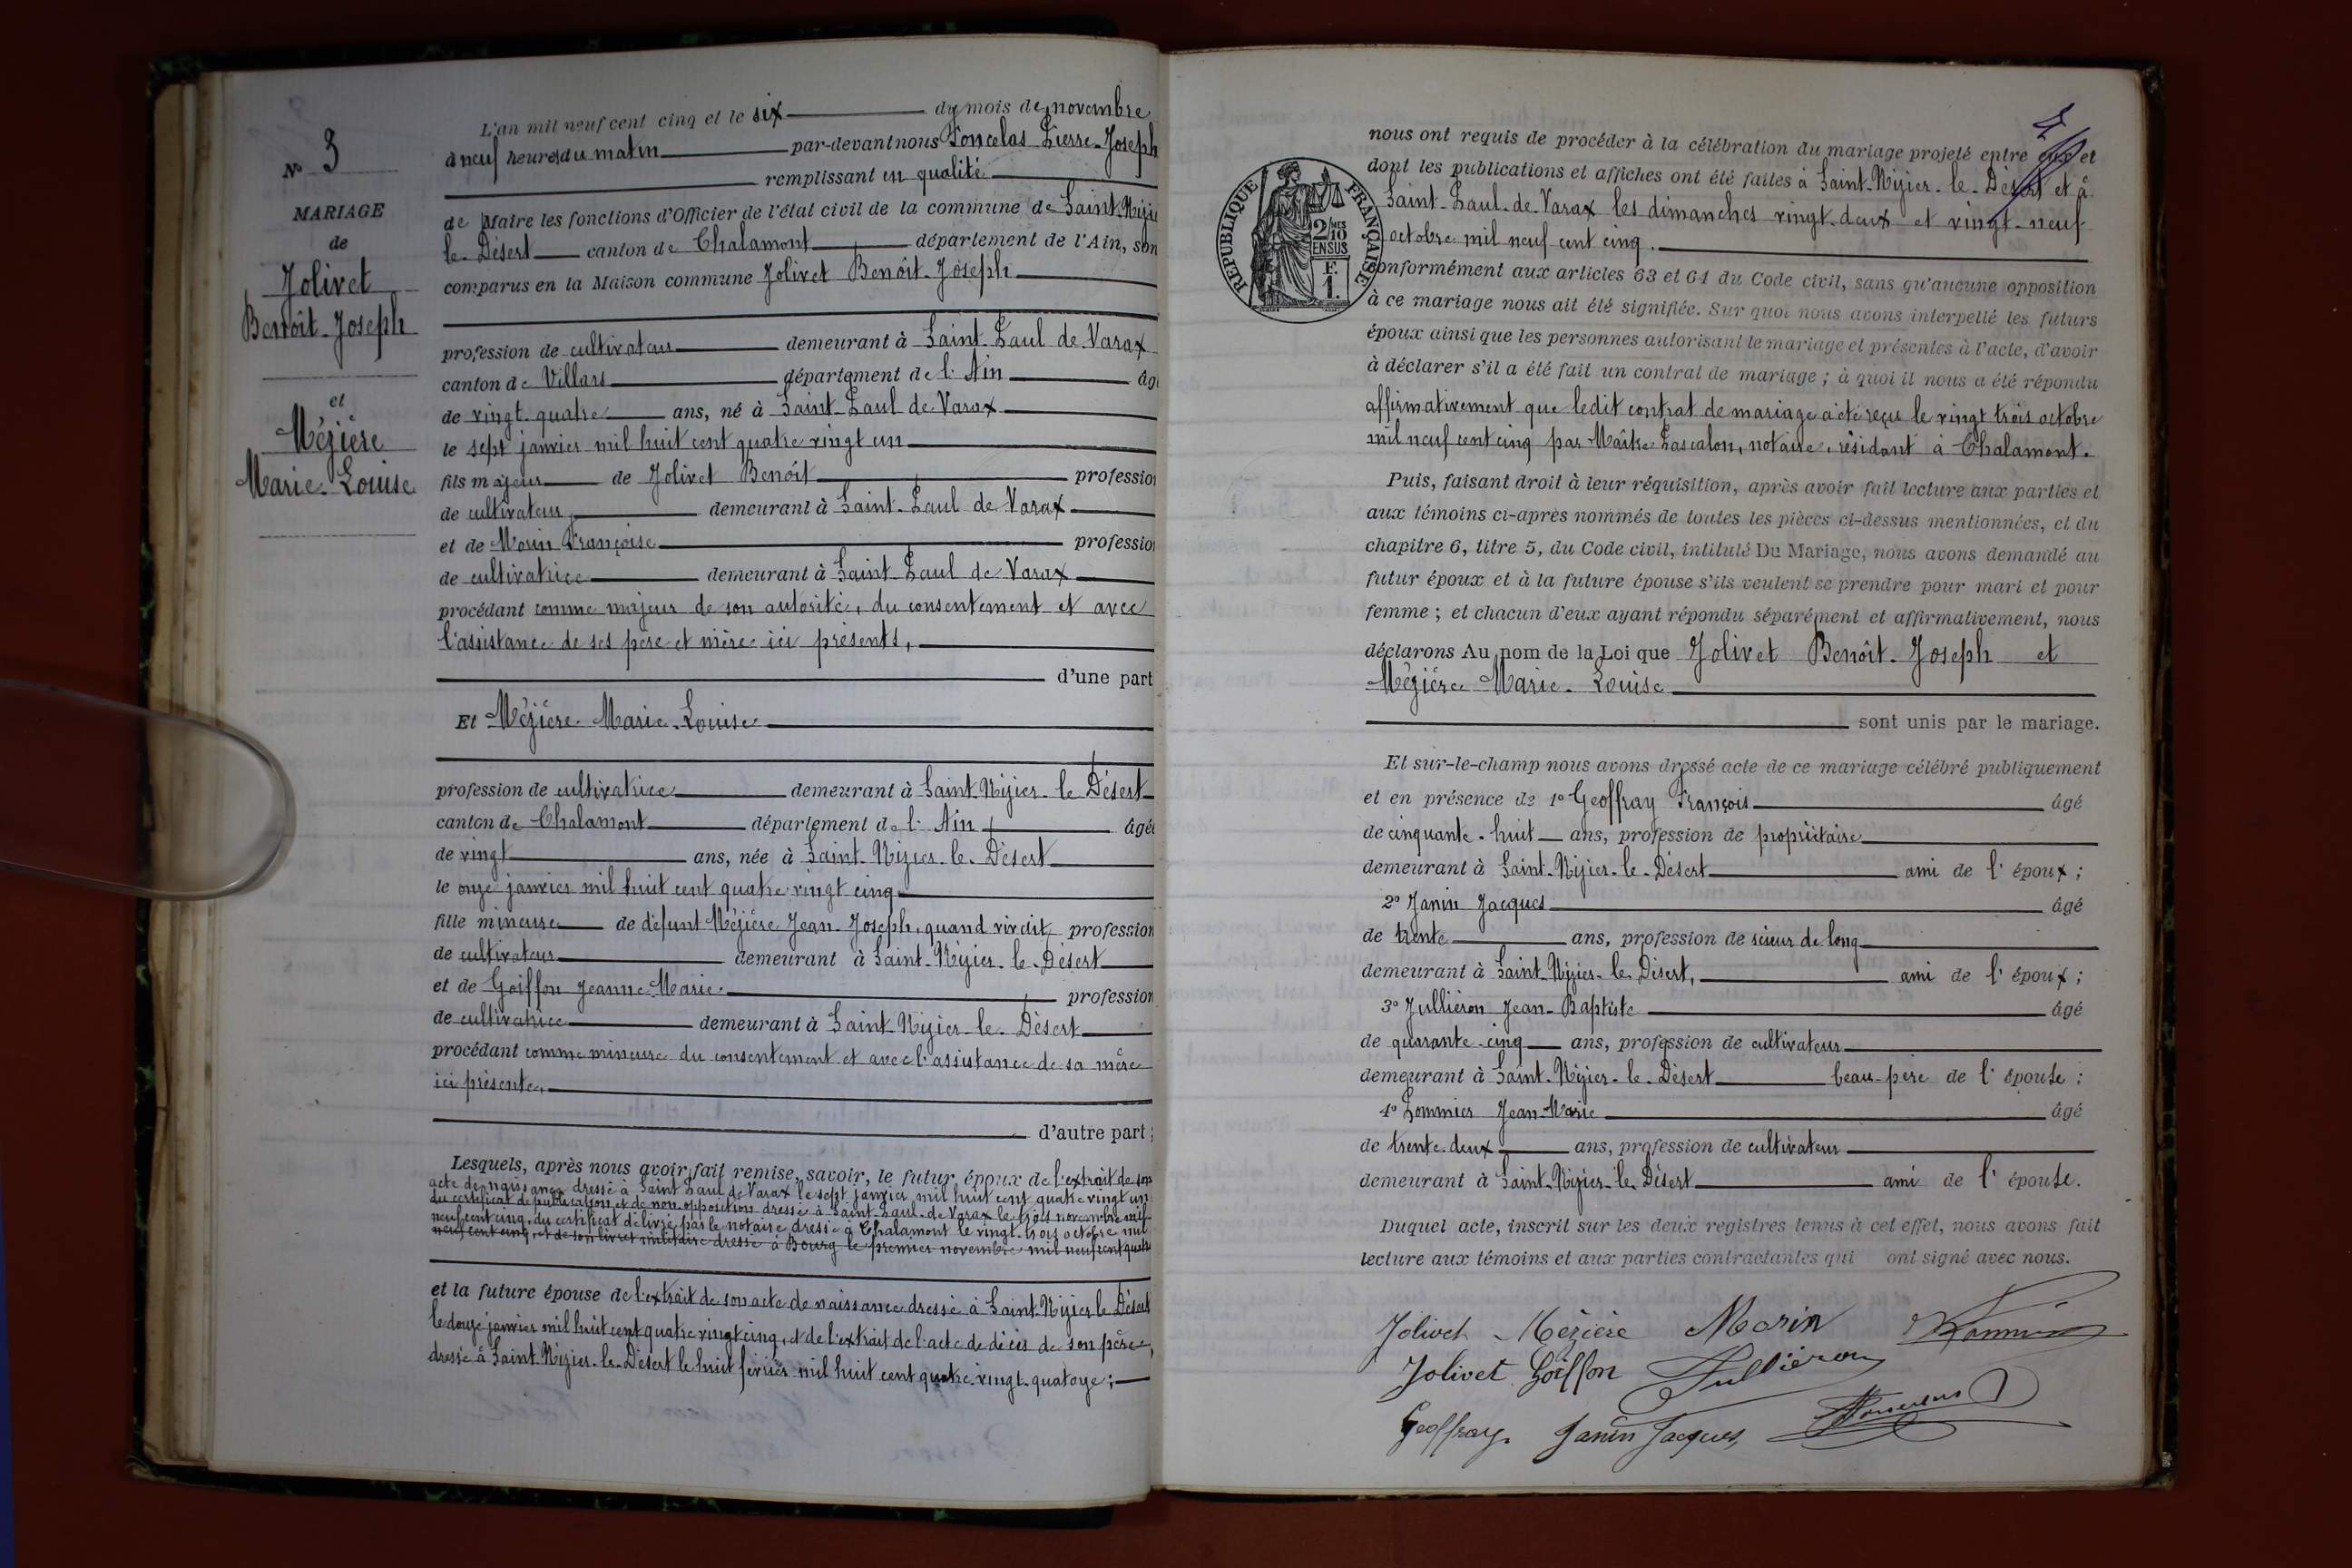 N° 3
MARIAGE
de
Jolivet
Benoît-Joseph
et
Mézière
Marie-Louise
L'an mil neuf cent cinq et le six du mois de novembre
à neuf heures du matin par-devant nous Poncelas Pierre-Joseph
remplissant en qualité
de Maire les fonctions d'Officier de l'état civil de la commune de Saint-Nizie
le-Désert canton de Chalamont département de l'Ain, son
comparus en la Maison commune Jolivet Benoît-Joseph
profession de cultivateur demeurant à Saint-Paul de Varax
canton de Villars département de l'Ain âg
de vingt-quatre ans, né à Saint-Paul de Varax
le sept janvier mil huit cent quatre vingt un
fils majeur de Jolivet Benoît professio
de cultivateur, demeurant à Saint-Paul de Varax
et de Morin Françoise professio
de cultivatrice demeurant à Saint-Paul de Varax
procédant comme majeur de son autorité, du consentement et avec
l'assistance de ses père et mère ici présents,
d'une part
Et Mézière Marie-Louise
profession de cultivatrice demeurant à Saint-Nizier-le-Désert
canton de Chalamont département de l'Ain âgé
de vingt ans, née à Saint-Nizier-le-Désert
le onze janvier mil huit cent quatre vingt cinq
fille mineure de défunt Mézière Jean-Joseph, quand vivait profession
de cultivateur demeurant à Saint-Nizier-le-Désert
et de Goiffon Jeanne-Marie profession
de cultivatrice demeurant à Saint-Nizier-le-Désert
procédant comme mineure du consentement et avec l'assistance de sa mère
ici présente,
d'autre part ;
Lesquels, après nous avoir fait remise, savoir, le futur époux de l'extrait de son
acte de naissance dressé à Saint Paul de Varax le sept janvier mil huit cent quatre vingt un
du certificat de publication et de non opposition dressé à Saint-Paul-de-Varax le trois novembre mil
neuf cent cinq, du certificat délivré par le notaire dressé à Chalamont le vingt-trois octobre mil
neuf cent cinq, et de son livret militaire dressé à Bourg le premier novembre mil neuf cent quatre
et la future épouse de l'extrait de son acte de naissance dressé à Saint-Nizier le Désert
le douze janvier mil huit cent quatre vingt cinq, et de l'extrait de l'acte de décès de son père,
dressé à Saint-Nizier-le-Désert le huit février mil huit cent quatre-vingt-quatorze ;
nous ont requis de procéder à la célébration du mariage projeté entre eux et
dont les publications et affiches ont été faites à Saint-Nizier-le-Désert et à
Saint-Paul-de-Varax les dimanches vingt-deux et vingt-neuf
octobre mil neuf cent cinq.
RÉPUBLIQUE FRANÇAISE
2/MES
10
EN SUS
F.
1.
conformément aux articles 63 et 64 du Code civil, sans qu'aucune opposition
à ce mariage nous ait été signifiée. Sur quoi nous avons interpellé les futurs
époux ainsi que les personnes autorisant le mariage et présentes à l'acte, d'avoir
à déclarer s'il a été fait un contrat de mariage ; à quoi il nous a été répondu
affirmativement que ledit contrat de mariage a été reçu le vingt trois octobre
mil neuf cent cinq par Maître Lascalon, notaire, résidant à Chalamont.
Puis, faisant droit à leur réquisition, après avoir fait lecture aux parties et
aux témoins ci-après nommés de toutes les pièces ci-dessus mentionnées, et du
chapitre 6, titre 5, du Code civil, intitulé Du Mariage, nous avons demandé au
futur époux et à la future épouse s'ils veulent se prendre pour mari et pour
femme ; et chacun d'eux ayant répondu séparément et affirmativement, nous
déclarons Au nom de la Loi que Jolivet Benoît-Joseph et
Mézière Marie-Louise
sont unis par le mariage.
Et sur-le-champ nous avons dressé acte de ce mariage célébré publiquement
et en présence de 1° Geoffray François âgé
de cinquante-huit ans, profession de propriétaire
demeurant à Saint-Nizier-le-Désert ami de l'époux ;
2° Janin Jacques âgé
de trente ans, profession de scieur de long
demeurant à Saint-Nizier-le-Désert, ami de l'époux ;
3° Jullièron Jean-Baptiste âgé
de quarante-cinq ans, profession de cultivateur
demeurant à Saint-Nizier-le-Désert beau-père de l'épouse ;
4° Pommier Jean-Marie âgé
de trente-deux ans, profession de cultivateur
demeurant à Saint-Nizier-le-Désert ami de l'épouse.
Duquel acte, inscrit sur les deux registres tenus à cet effet, nous avons fait
lecture aux témoins et aux parties contractantes qui ont signé avec nous.
Jolivet Mézière Morin Pommier
Jolivet Goiffon Jullièron
Geoffray Janin Jacques